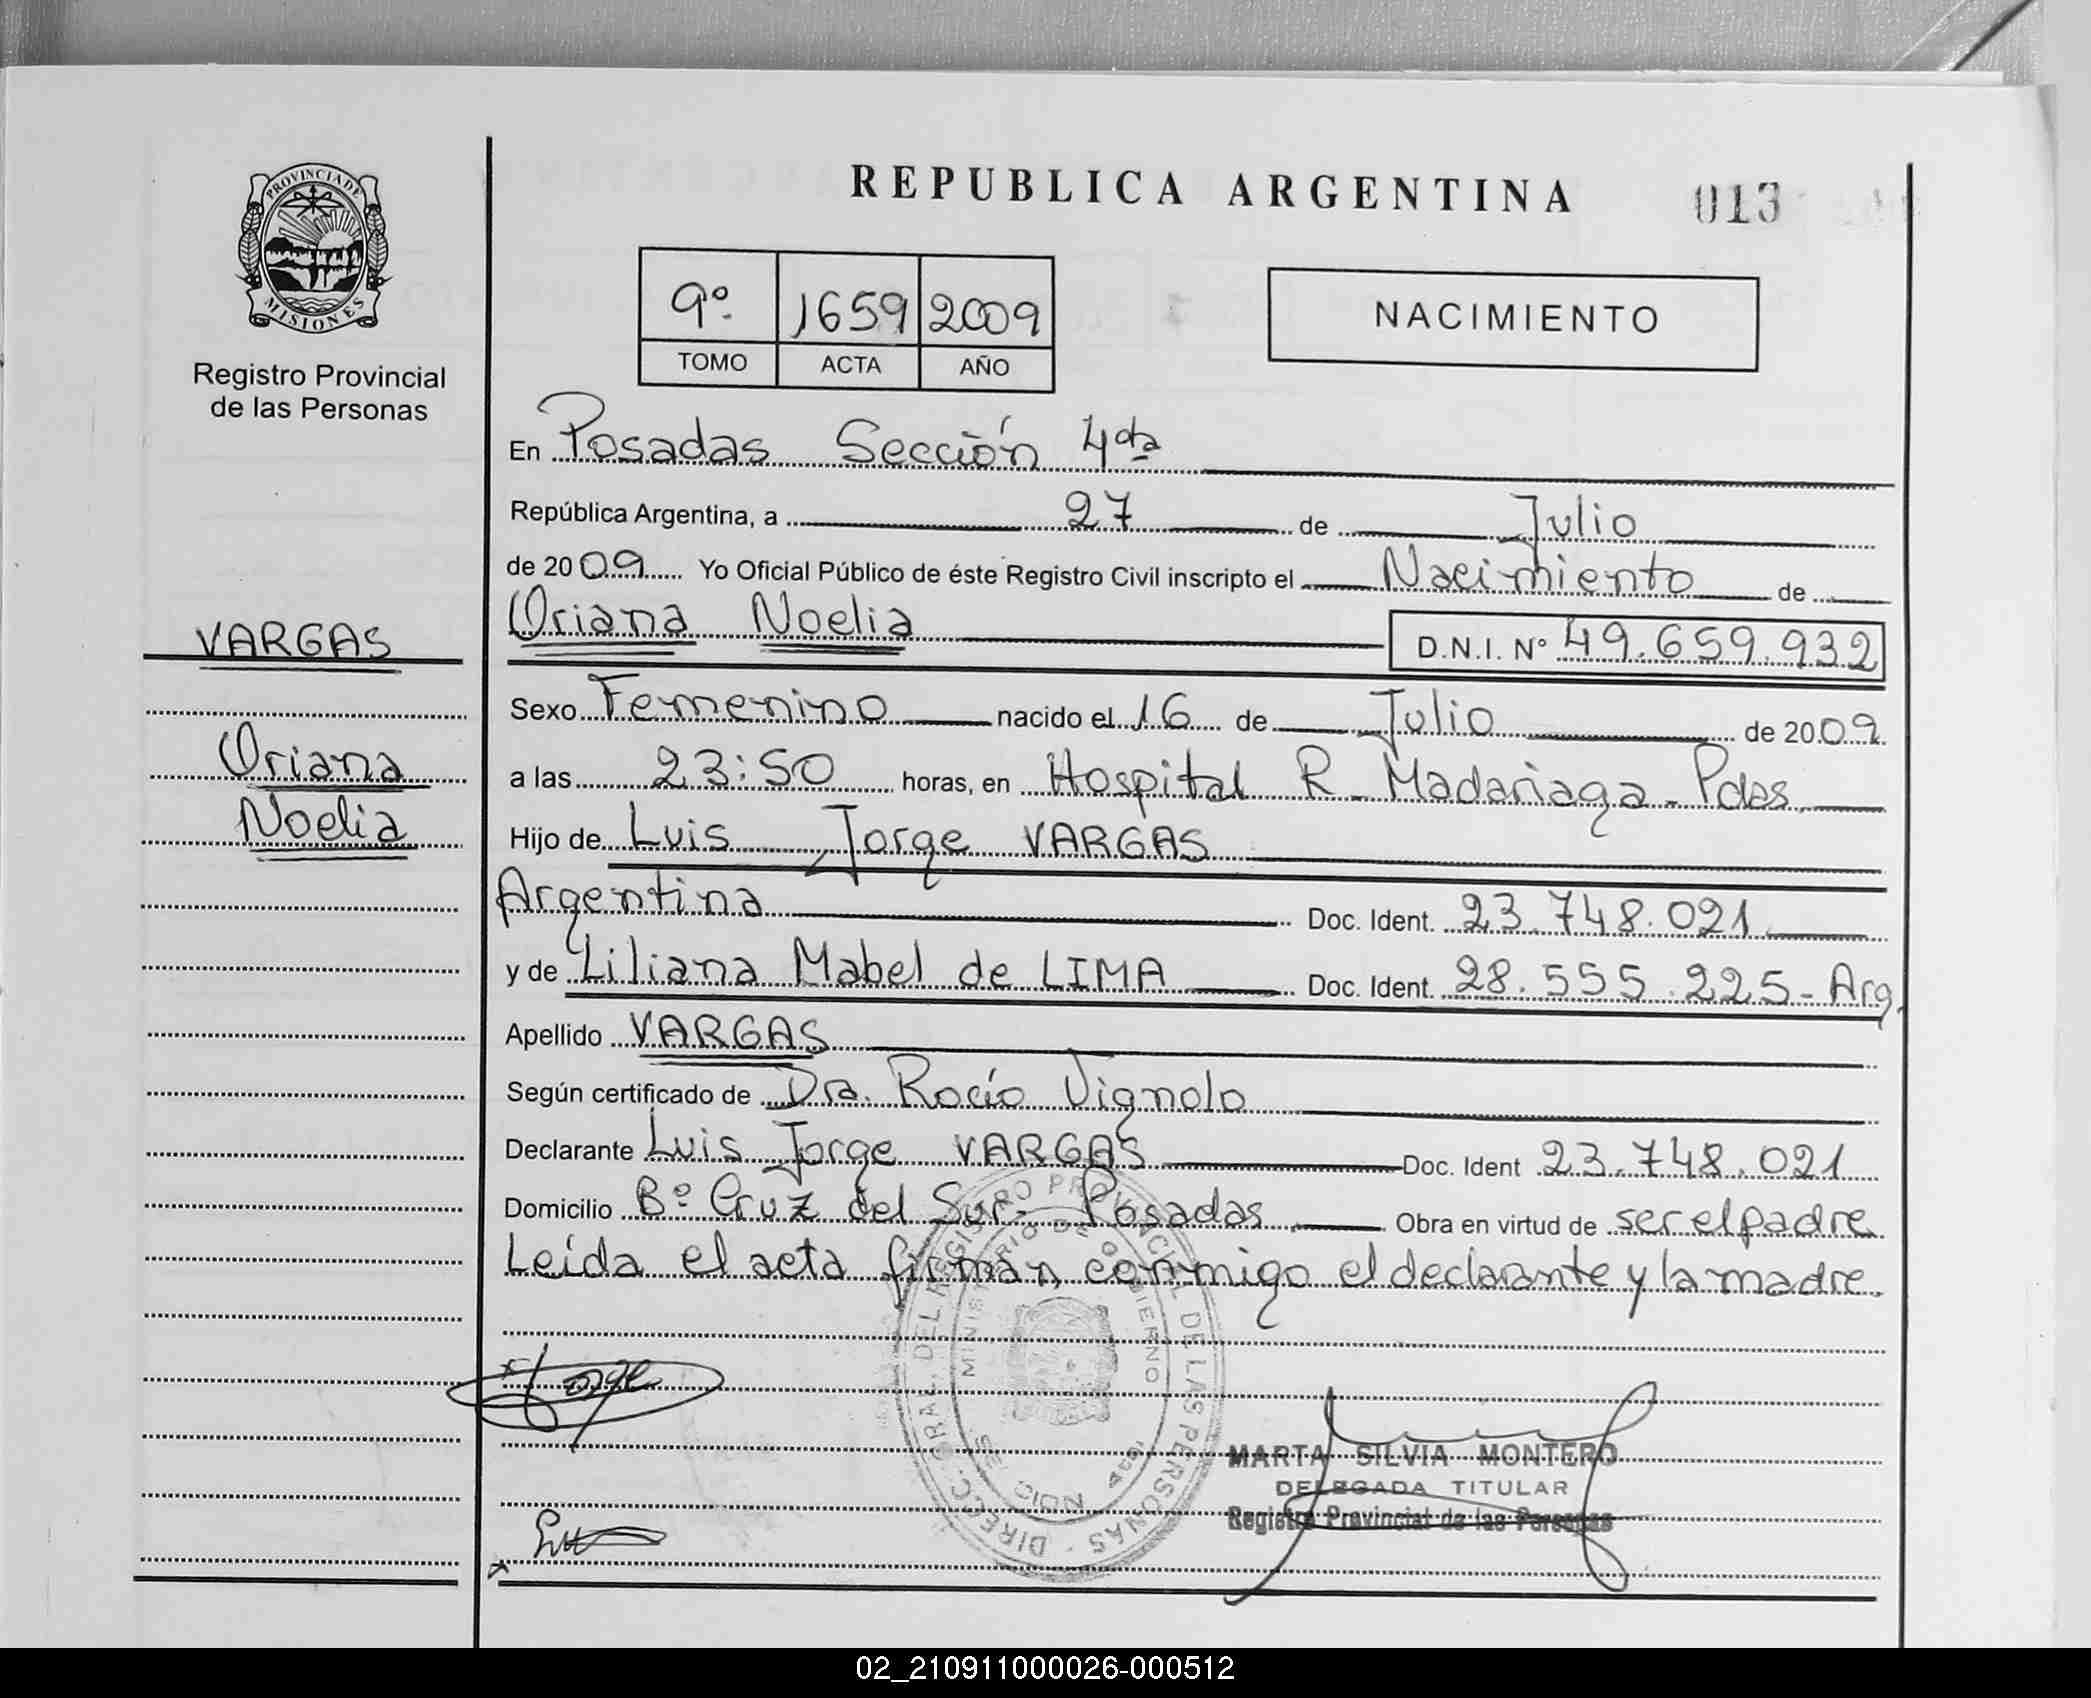 REPUBLICA ARGENTINA
013
PROVINCIA DE
MISIONES
Registro Provincial
de las Personas
9º 1659 2009
TOMO ACTA AÑO
NACIMIENTO
En Posadas Sección 4ta
República Argentina, a 27 de Julio
de 2009 Yo Oficial Público de éste Registro Civil inscripto el Nacimiento de
VARGAS
Oriana Noelia D.N.I. Nº 49.659.932
Sexo Femenino nacido el 16 de Julio de 2009
Oriana
a las 23:50 horas, en Hospital R. Madariaga - Pdas
Noelia
Hijo de Luis Jorge VARGAS
Argentina Doc. Ident. 23.748.021
y de Liliana Mabel de LIMA Doc. Ident. 28.555.225 - Arg.
Apellido VARGAS
Según certificado de Dra. Rocío Vignolo
Declarante Luis Jorge VARGAS Doc. Ident 23.748.021
Domicilio Bº Cruz del Sur - Posadas Obra en virtud de ser el padre
Leída el acta firman conmigo el declarante y la madre.
DIRECC. GRAL. DEL REGISTRO PROVINCIAL DE LAS PERSONAS
MINISTERIO DE GOBIERNO
Jorge
MARTA SILVIA MONTERO
DELEGADA TITULAR
Registro Provincial de las Personas
02_210911000026-000512